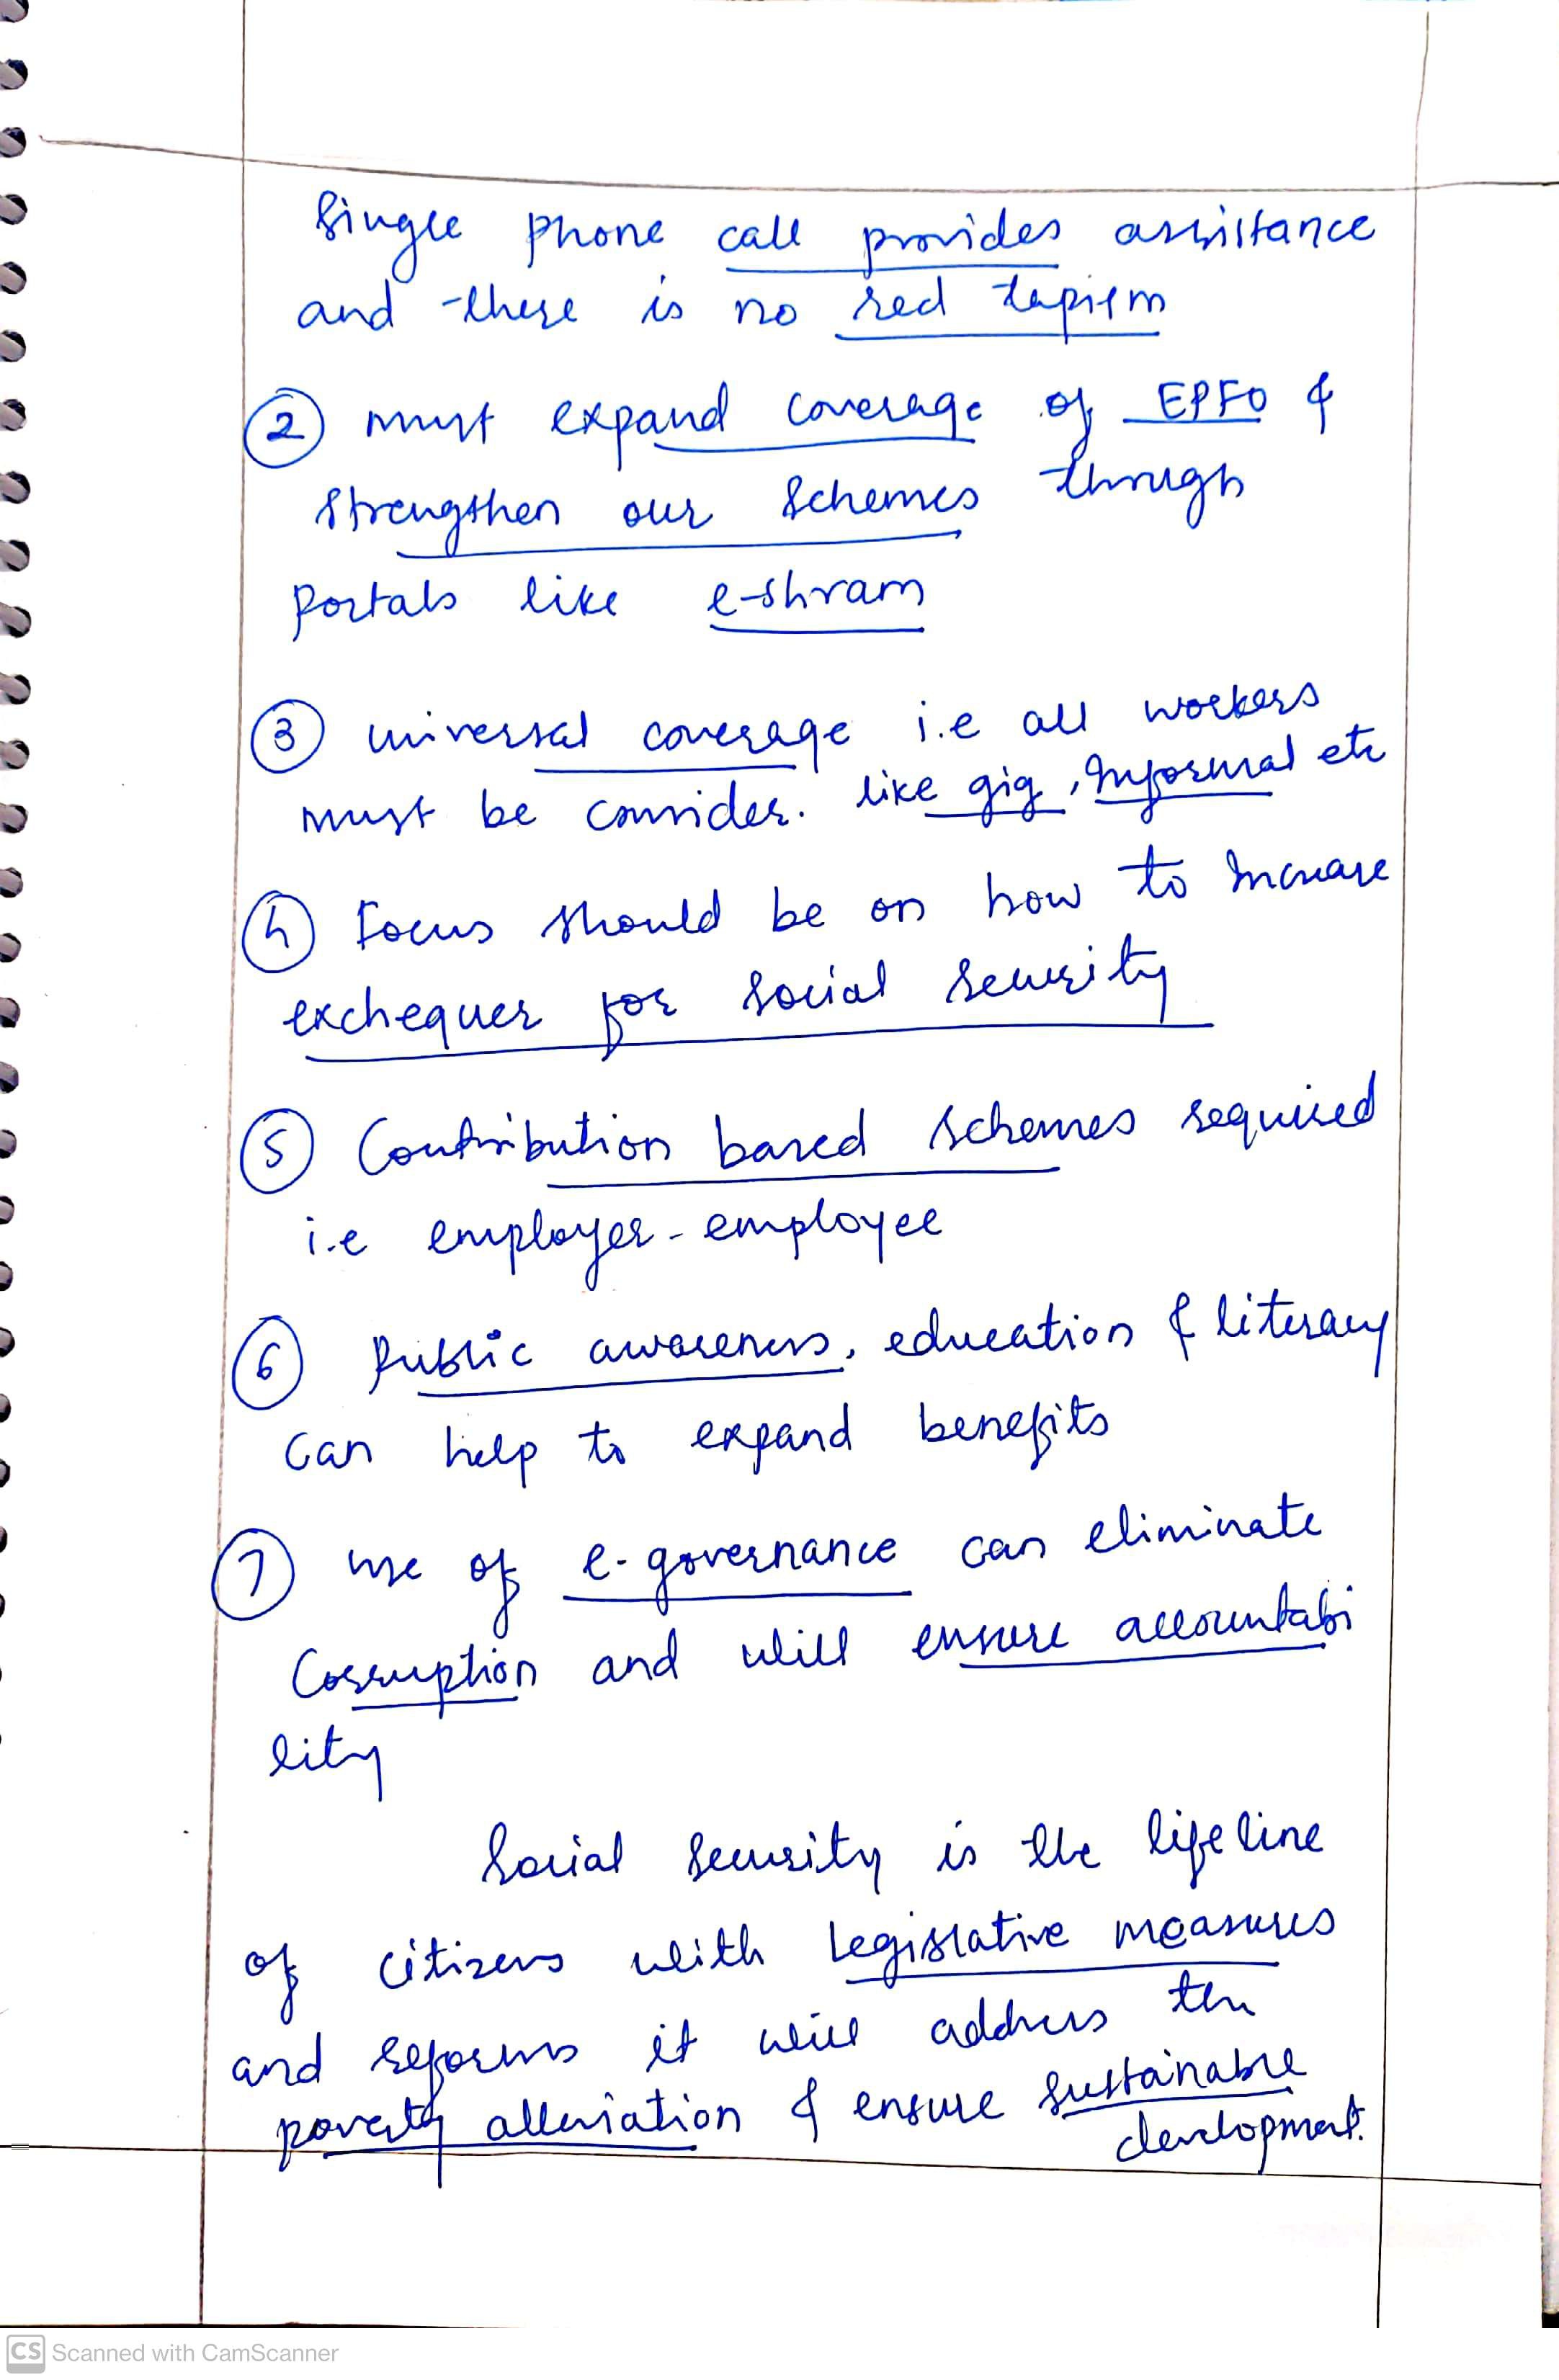 Single phone call provides assistance
and there is no red tapism
② must expand coverage of EPFO &
strengthen our schemes through
portals like e-shram
③ universal coverage i.e all workers
must be consider. like gig, Informal etc
④ Focus should be on how to Increase
exchequer for social security
⑤ Contribution based schemes required
i.e employer-employee
⑥ Public awareness, education & literacy
can help to expand benefits
⑦ use of e-governance can eliminate
Corruption and will ensure accountabi
lity
Social security is the lifeline
of citizens with legislative measures
and reforms it will address the
poverty alleviation & ensure sustainable
development.
CS Scanned with CamScanner